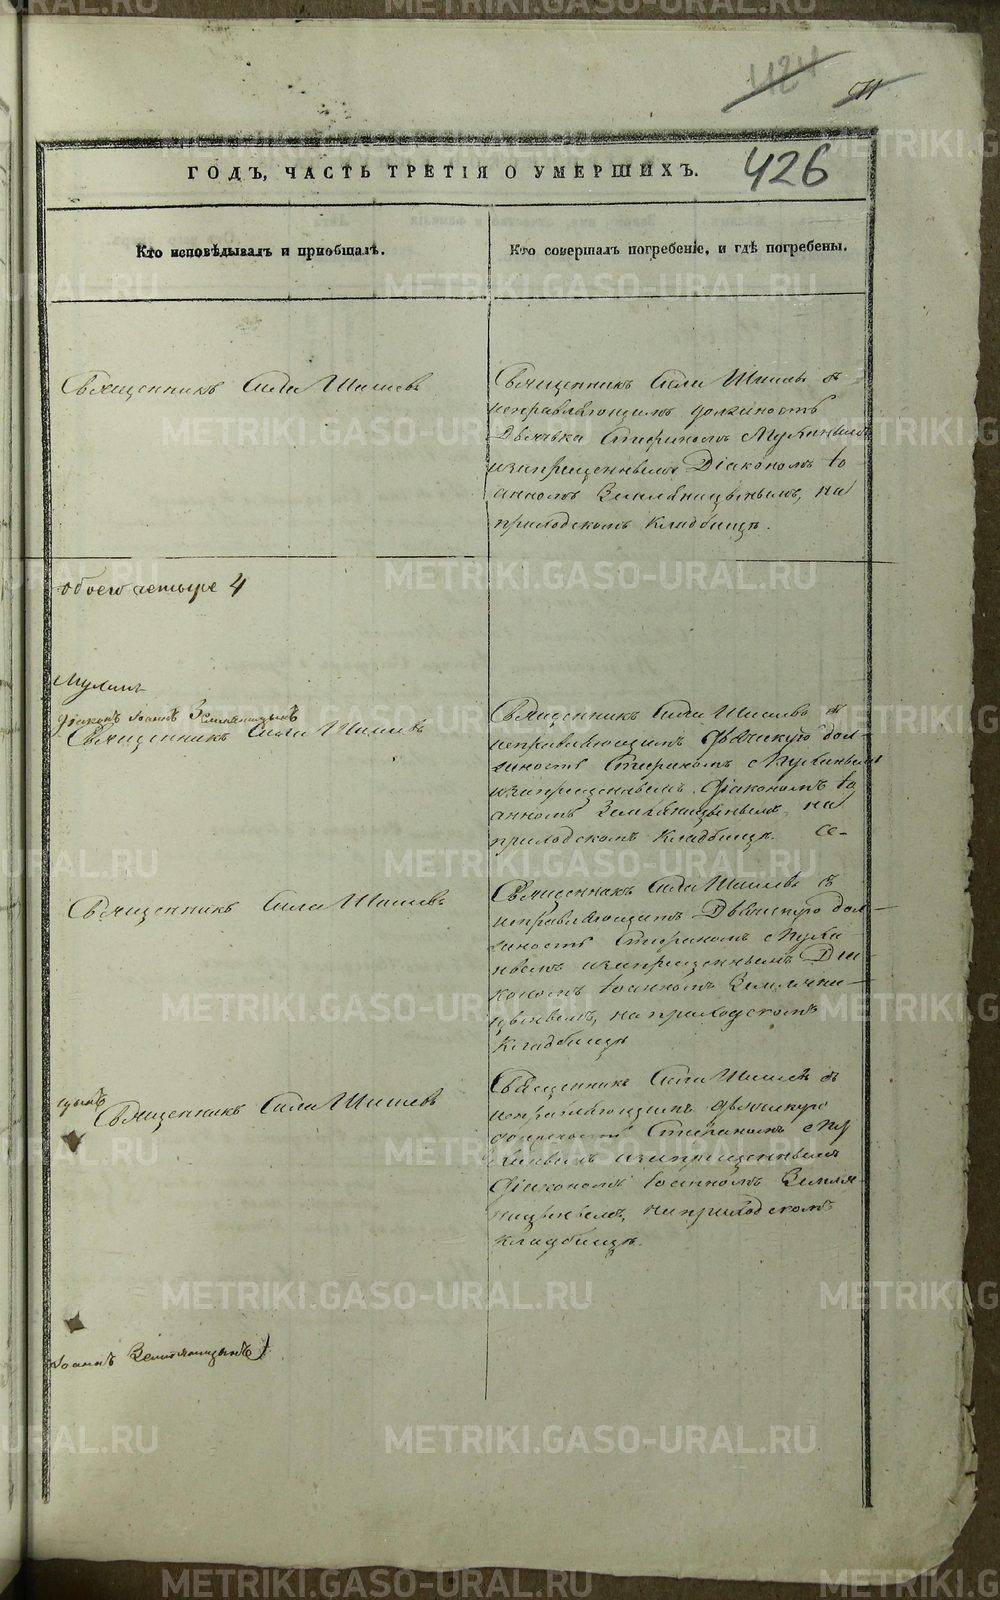 ГОДЪ, ЧАСТЬ ТРЕТІЯ О УМЕРШИХЪ.
426
Кто исповѣдывалъ и приобщалъ.
Кто совершалъ погребеніе, и гдѣ погребены.
Священникъ Сила Шишевъ
Священникъ Сила Шишевъ съ
исправляющимъ должность
Дьячька Стефаномъ Мухинымъ
и запрещеннымъ Діакономъ Іо
анномъ Земляницынымъ, на
приходскомъ кладбищѣ.
обоего четыре 4
Мухинъ
Діаконъ Іоаннъ Земляницынъ
Священникъ Сила Шишевъ
Священникъ Сила Шишевъ съ
исправляющимъ дьяческую дол-
жность Стефаномъ Мухинымъ
и запрещеннымъ Діакономъ Іо
анномъ Земляницынымъ, на
приходскомъ кладбищѣ.
Священникъ Сила Шишевъ
Священникъ Сила Шишевъ съ
исправляющимъ Дьяческую дол-
жность Стефаномъ Мухи-
нымъ и запрещеннымъ Діа-
кономъ Іоанномъ Земляни-
цынымъ, на приходскомъ
кладбищѣ
цынъ
Священникъ Сила Шишевъ
Священникъ Сила Шишевъ съ
исправляющимъ дьяческую
должность Стефаномъ Му
хинымъ и запрещеннымъ
Діакономъ Іоанномъ Земля-
ницынымъ, на приходскомъ
кладбищѣ.
Іоаннъ Земляницынъ
METRIKI.GASO-URAL.RU